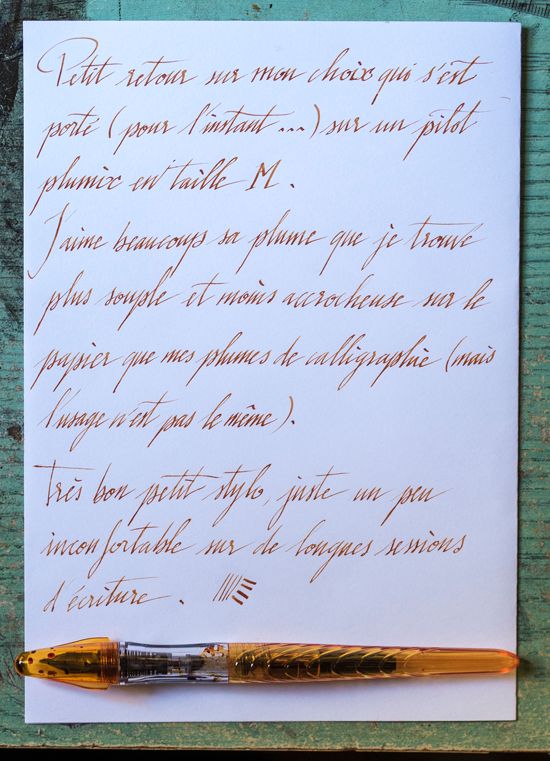 Petit retour sur mon choix qui s'est
porté (pour l'instant ...) sur un pilot
plumix en taille M.
J'aime beaucoup sa plume que je trouve
plus souple et moins accrocheuse sur le
papier que mes plumes de calligraphie (mais
l'usage n'est pas le même).
Très bon petit stylo, juste un peu
inconfortable sur de longues sessions
d'écriture.